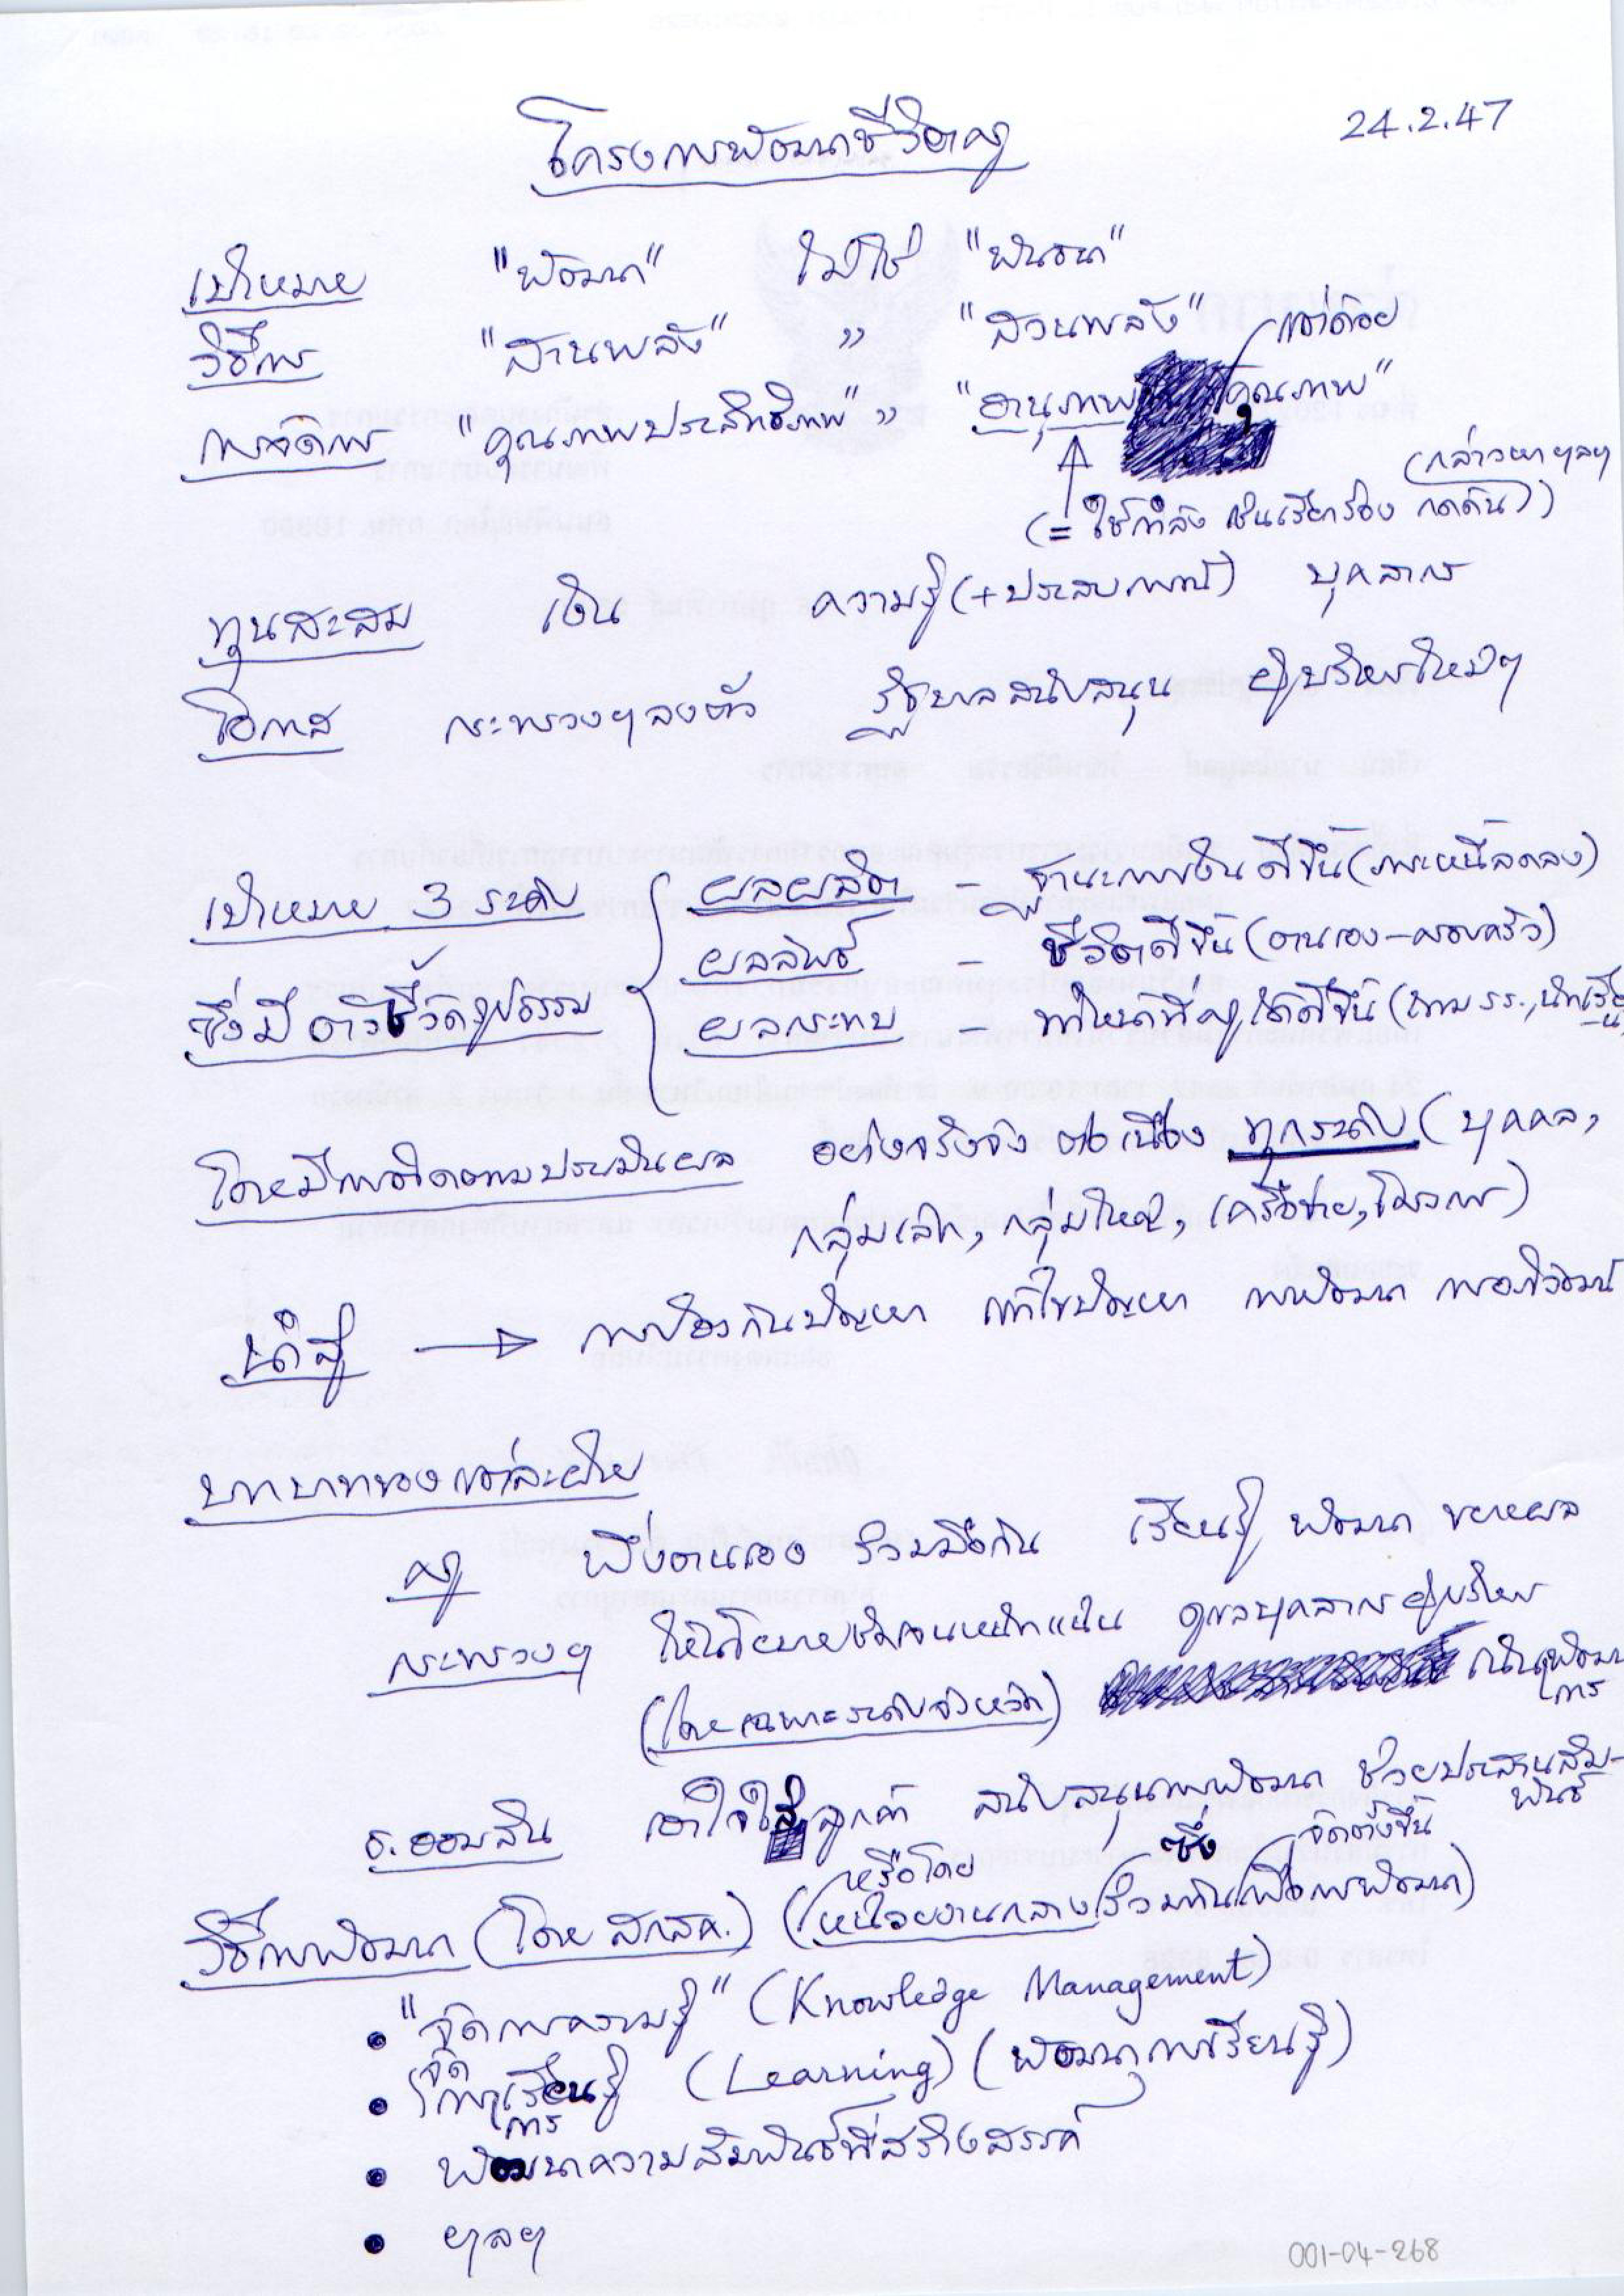 24.2.47
โครงการพัฒนาชีวิตครู
เป้าหมาย "พัฒนา" ไม่ใช่ "พันธนา"
วิธีการ "สานพลัง" " "สวนพลัง"
การจัดการ "คุณภาพประสิทธิภาพ" " "อานุภาพ แต่ด้อย คุณภาพ"
(= ใช้กำลัง เช่นเรียกร้อง กดดัน (กล่าวหา ฯลฯ))
ทุนสะสม เงิน ความรู้ (+ประสบการณ์) บุคลากร
โอกาส กระทรวงฯ ลงตัว รัฐบาลสนับสนุน ผู้บริหารใหม่ๆ
เป้าหมาย 3 ระดับ ผลผลิต – ฐานะการเงินดีขึ้น (ภาระหนี้ลดลง)
ผลลัพธ์ – ชีวิตดีขึ้น (ตนเอง – ครอบครัว)
ซึ่งมี ตัวชี้วัดรูปธรรม ผลกระทบ – ทำหน้าที่ครูได้ดีขึ้น (ถาม รร., นักเรียน
โดยมีการติดตามประเมินผล อย่างจริงจัง ต่อเนื่อง ทุกระดับ (บุคคล,
กลุ่มเล็ก, กลุ่มใหญ่, เครือข่าย, โครงการ)
นำสู่ → การป้องกันปัญหา แก้ไขปัญหา การพัฒนา การอภิวัฒน์
บทบาทของแต่ละฝ่าย
ครู พึ่งตนเอง ร่วมมือกัน เรียนรู้ พัฒนา ขยายผล
กระทรวงฯ ให้นโยบายชัดเจนหนักแน่น ดูแลบุคลากรผู้บริหาร
(โดยเฉพาะระดับจังหวัด) เน้นการพัฒนา
ธ.ออมสิน เอาใจใส่ลูกค้า สนับสนุนการพัฒนา ช่วยประสานสัมพันธ์
วิธีการพัฒนา (โดย สกสค.) (หรือโดยหน่วยงานกลางซึ่งร่วมกันจัดตั้งขึ้นเพื่อการพัฒนา)
• "จัดการความรู้" (Knowledge Management)
• จัดการการเรียนรู้ (Learning) (พัฒนาการเรียนรู้)
• พัฒนาความสัมพันธ์ที่สร้างสรรค์
• ฯลฯ
001-04-268